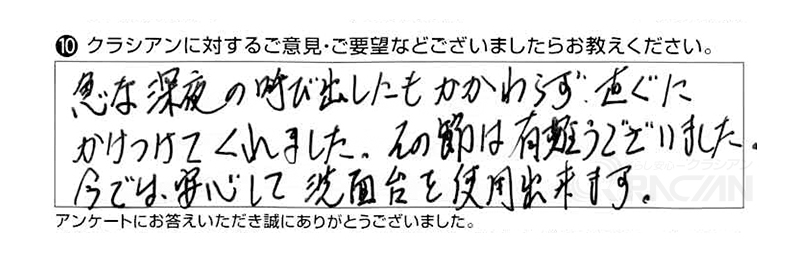 ⑩ クラシアンに対するご意見・ご要望などございましたらお教えください。
急な深夜の呼び出したもかかわらず、直ぐに
かけつけてくれました。その節は有難うございました。
今では、安心して洗面台を使用出来ます。
アンケートにお答えいただき誠にありがとうございました。